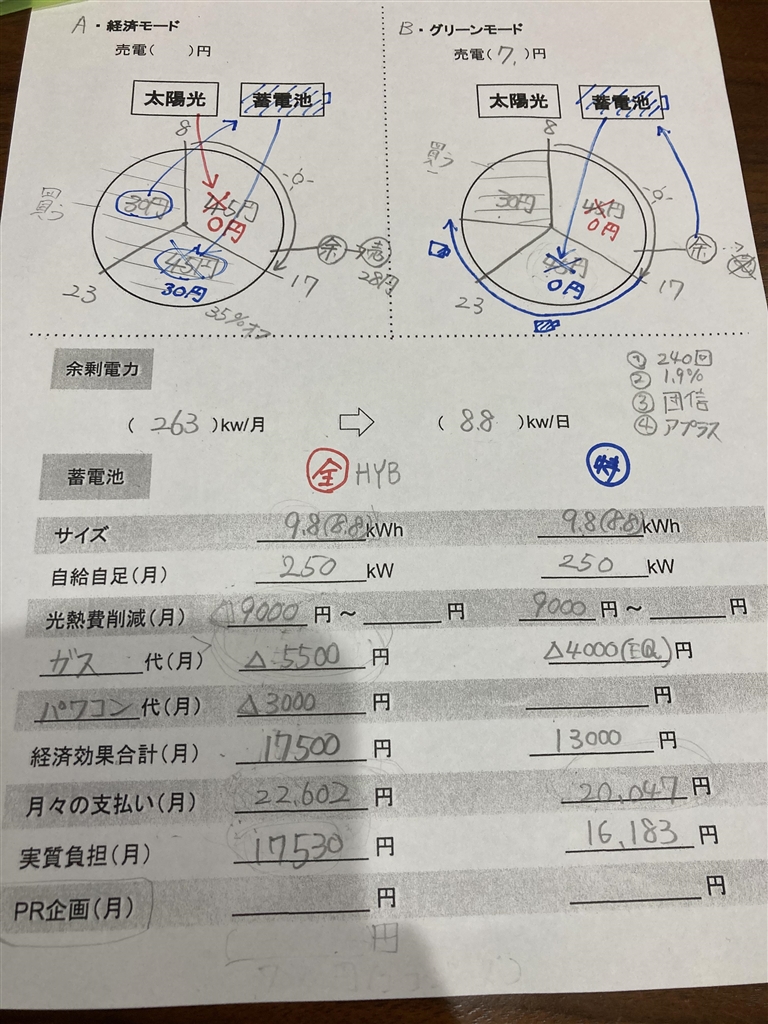 A・経済モード
売電(　)円
太陽光
蓄電池
8
買う
30円
45円
0円
45円
30円
余
売
28円
17
23
35%オフ
B・グリーンモード
売電(7.)円
太陽光
蓄電池
8
買う
30円
45円
0円
45円
0円
余
売
17
23
余剰電力
(263)kw/月
(8.8)kw/日
① 240回
② 1.9%
③ 団信
④ アプラス
蓄電池
全 HYB
特
サイズ 9.8(8.8)kWh 9.8(8.8)kWh
自給自足(月) 250 kW 250 kW
光熱費削減(月) 9000 円～ 円 9000 円～ 円
ガス 代(月) △5500 円 △4000(EQ)円
パワコン 代(月) △3000 円 円
経済効果合計(月) 17500 円 13000 円
月々の支払い(月) 22,602 円 20,047 円
実質負担(月) 17530 円 16,183 円
PR企画(月) 円 円
円